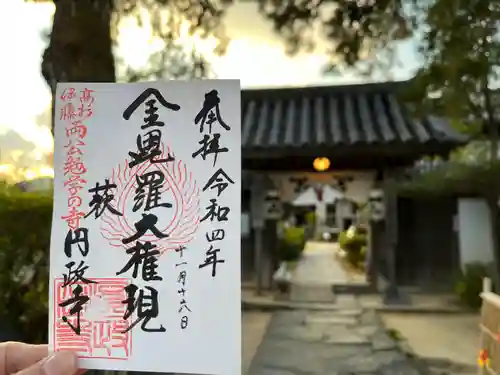 奉拝
令和四年
十一月十六日
金毘羅大権現
萩
円政寺
高杉
伊藤
両公勉学の寺